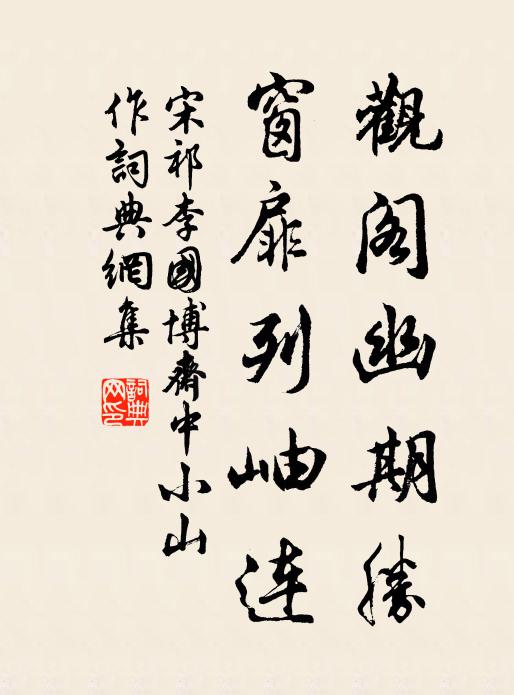 觀阁幽期勝
窗扉列岫連
宋祁李國博齋中小山
作詞典網集
詞典
网印